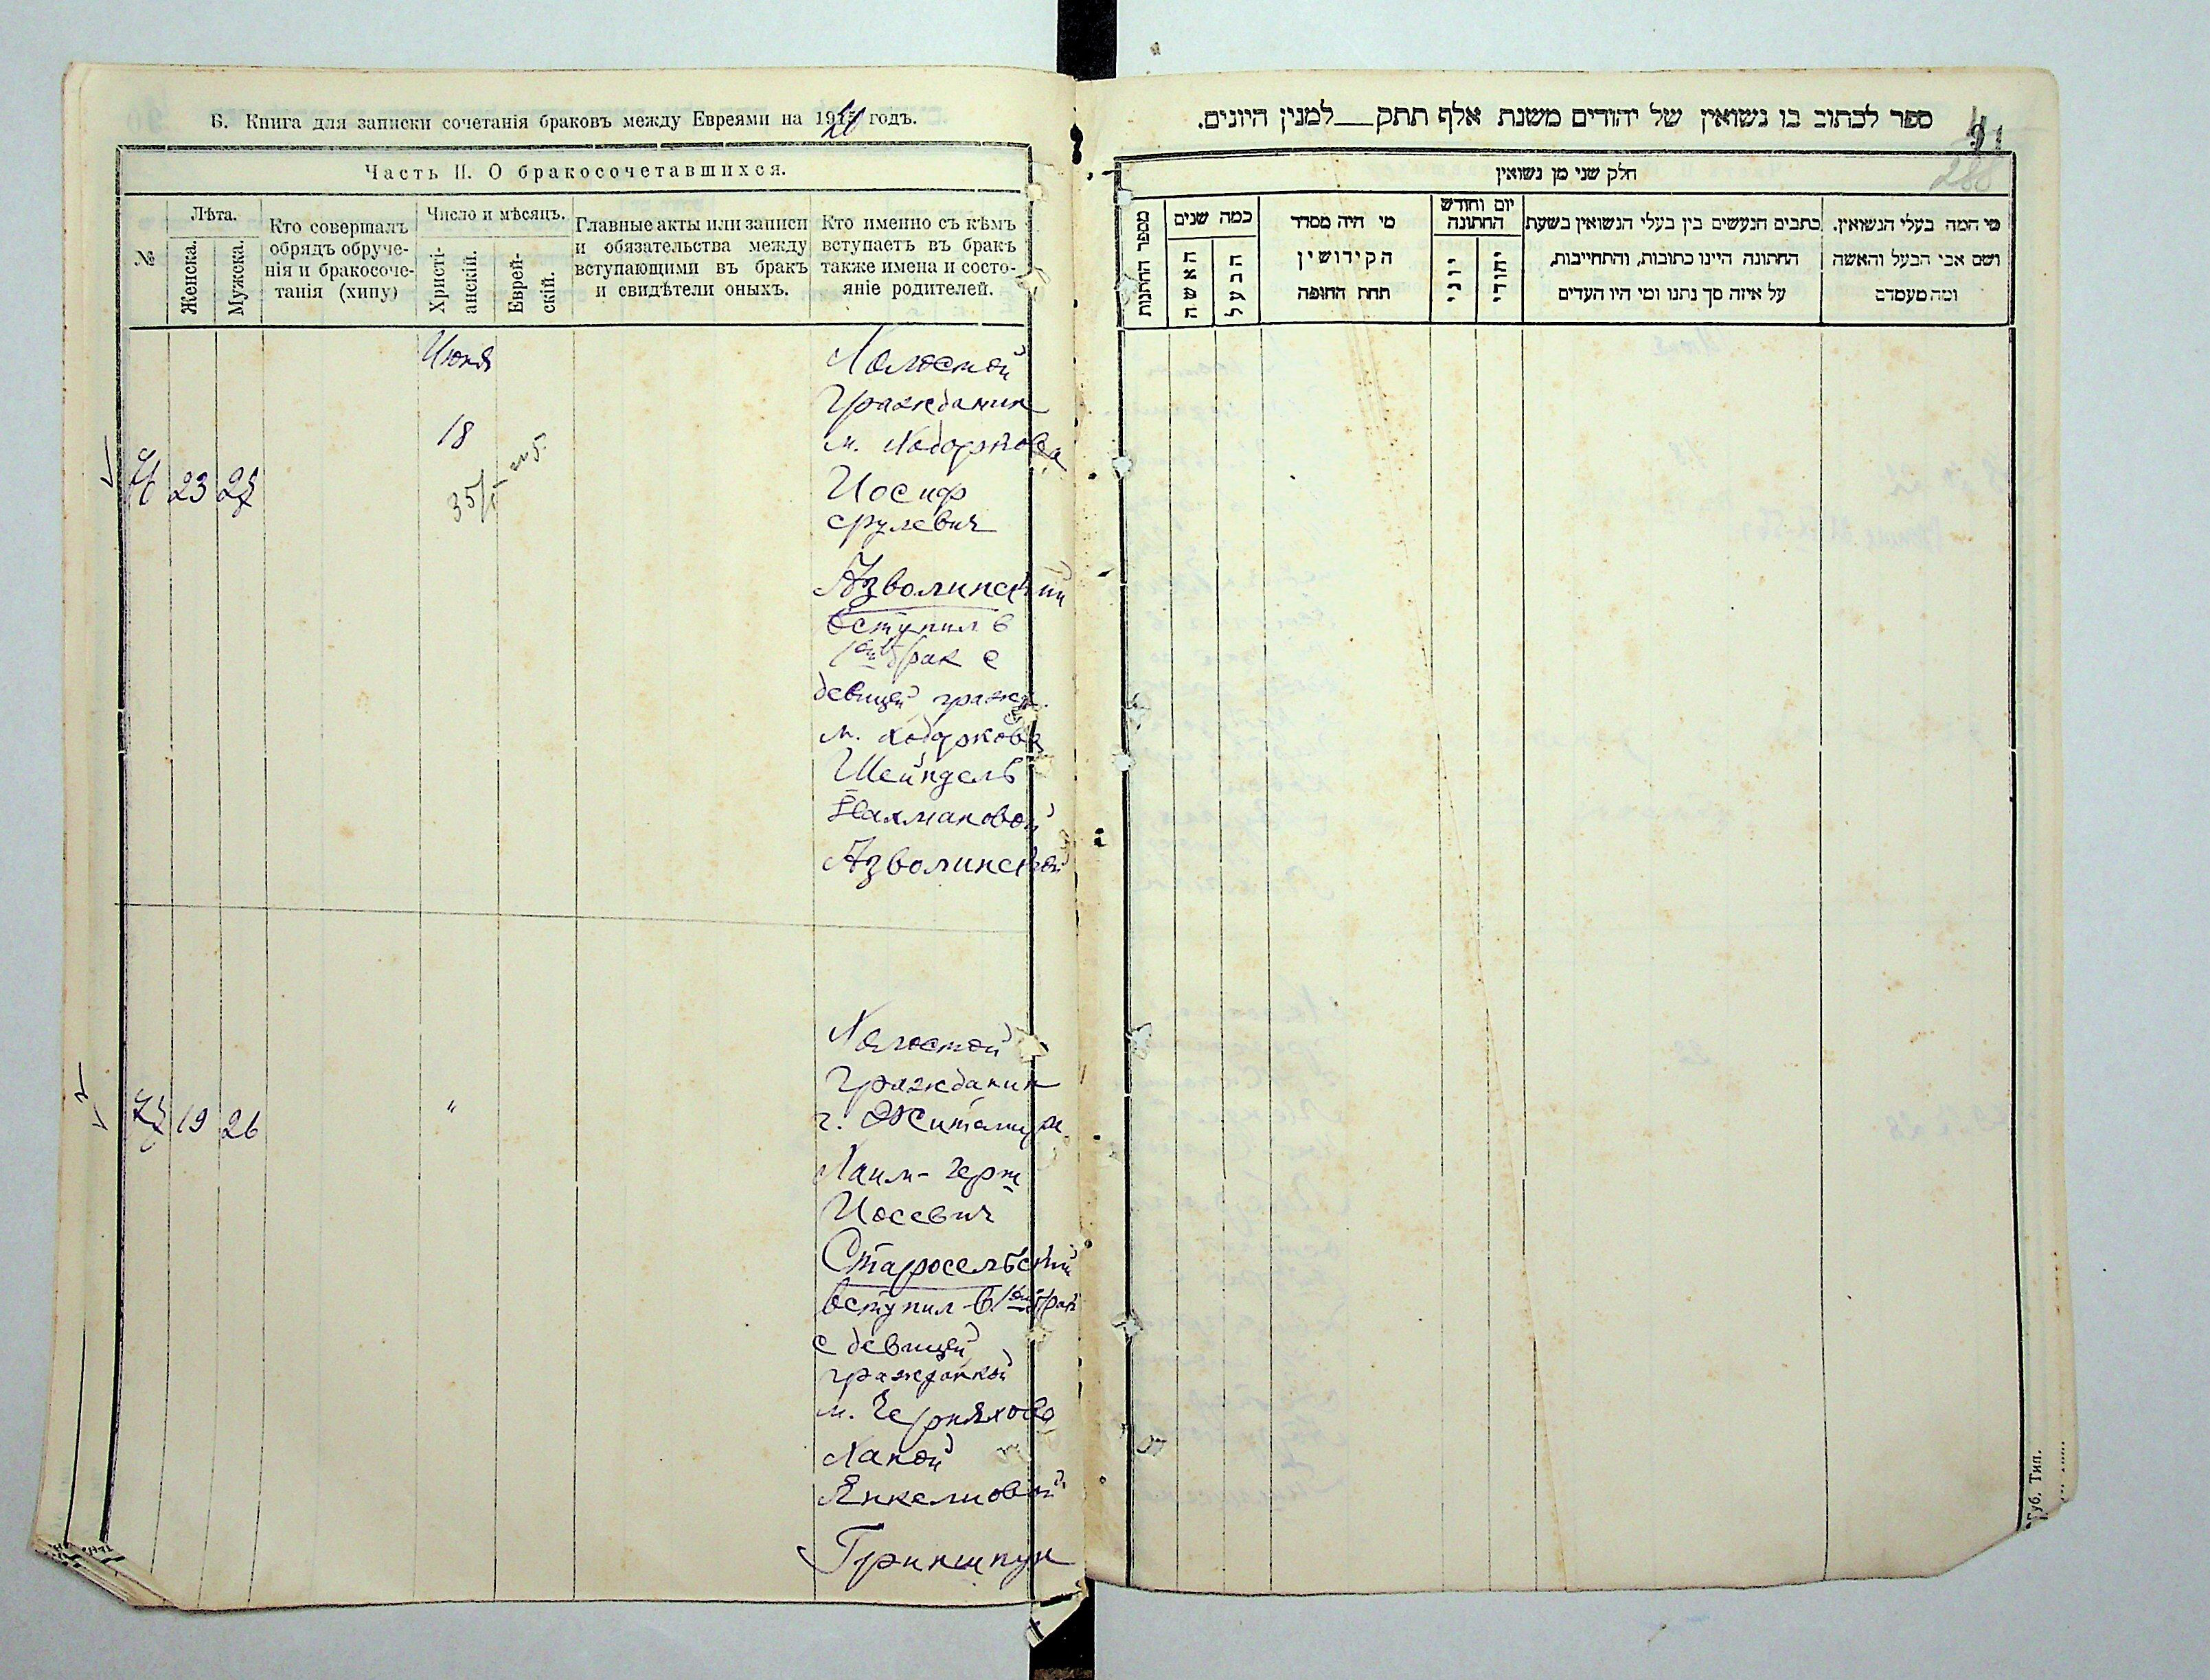 Б. Книга для записки сочетанія браковъ между Евреями на 19 годъ.
Часть II. О бракосочетавшихся.
№
Лѣта.
Женска.
Мужска.
Кто совершалъ
обрядъ обруче-
нія и бракосоче-
танія (хипу)
Число и мѣсяцъ.
Христі-
анскій.
Еврей-
скій.
Главные акты или записи
и обязательства между
вступающими въ бракъ
и свидѣтели оныхъ.
Кто именно съ кѣмъ
вступаетъ въ бракъ
также имена и состо-
яніе родителей.
Июня
18
23
Холостой
Гражданин
м. Ходоркова
Иосиф
срулевич
Азволинский
вступил в
1ый брак с
девицей гражд.
м. Ходоркова
Шейндель
Нахмановой
Азволинской
19 26
"
Холостой
Гражданин
г. Житомира
Хаим-Герш
Иосевич
Старосельский
вступил в 1ый брак
с девицей
гражданкой
м. Черняхова
Ханой
Янкелиовой
Гриншпун
ספר לכתוב בו נשואין של יהודים משנת אלף תתק__למנין היונים.
חלק שני מן נשואין
מספר החתונות
כמה שנים
האשה
הבעל
מי היה מסדר
הקידושין
תחת החופה
יום וחודש
החתונה
יוני
יהודי
כתבים הנעשים בין בעלי הנשואין בשעת
החתונה היינו כתובות, והתחייבות,
על איזה סך נתנו ומי היו העדים
מי המה בעלי הנשואין.
ושם אבי הבעל והאשה
ומה מעמדם
Губ. Тип.